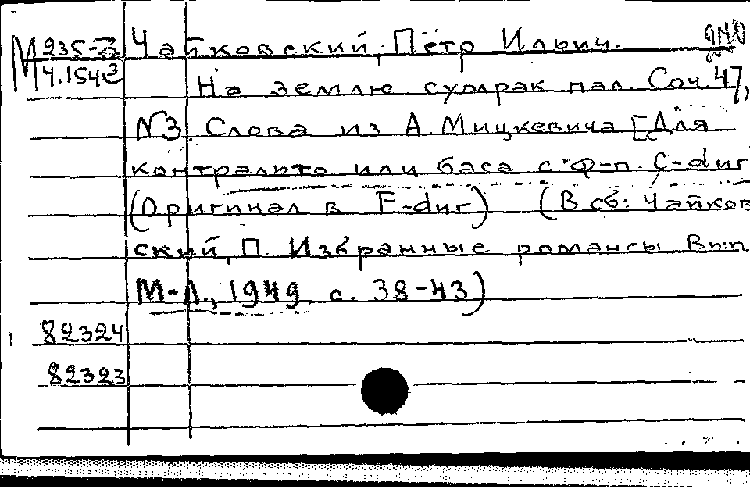 М 235-3 Чайковский, Пётр Ильич.
М 4.154е На землю сумрак пал. Соч. 47,
N3. Слова из А. Мицкевича [Для
контральто или баса с ф-п. C-dur
(Оригинал в F-dur) (В сб: Чайков
ский, П. Избранные романсы. Вып
М-Л., 1949 с. 38-43)
82324
82323